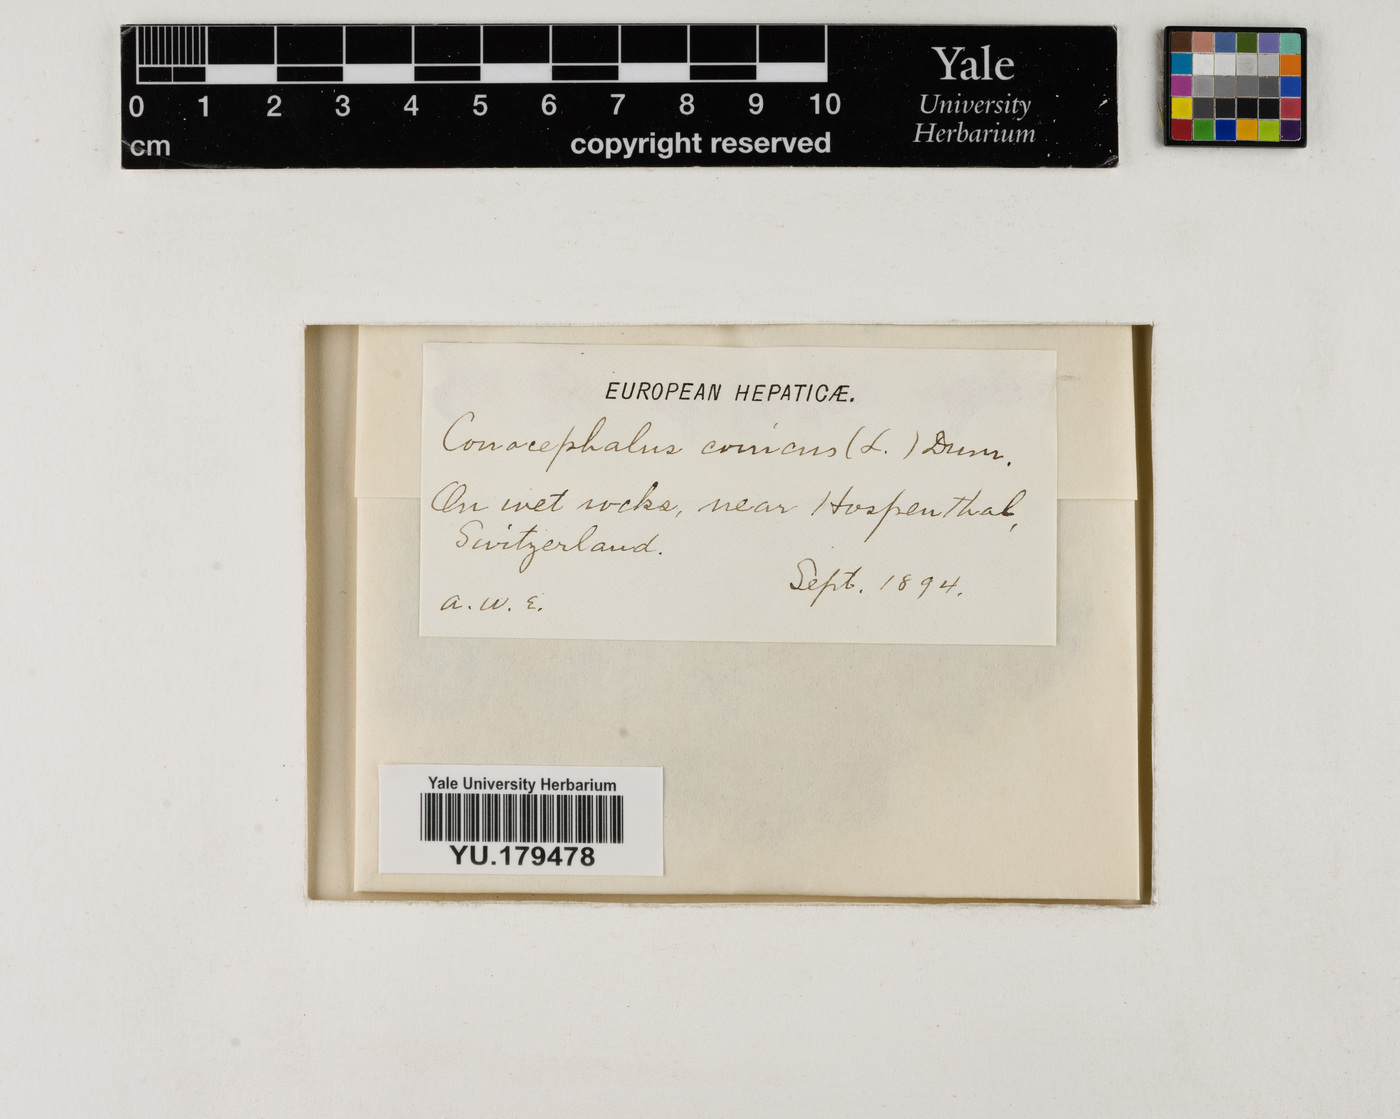 0 1 2 3 4 5 6 7 8 9 10
cm
copyright reserved
Yale
University
Herbarium
EUROPEAN HEPATICÆ.
Conocephalus conicus (L.) Dum.
On wet rocks, near Hospenthal,
Switzerland.
Sept. 1894.
a. w. e.
Yale University Herbarium
YU.179478